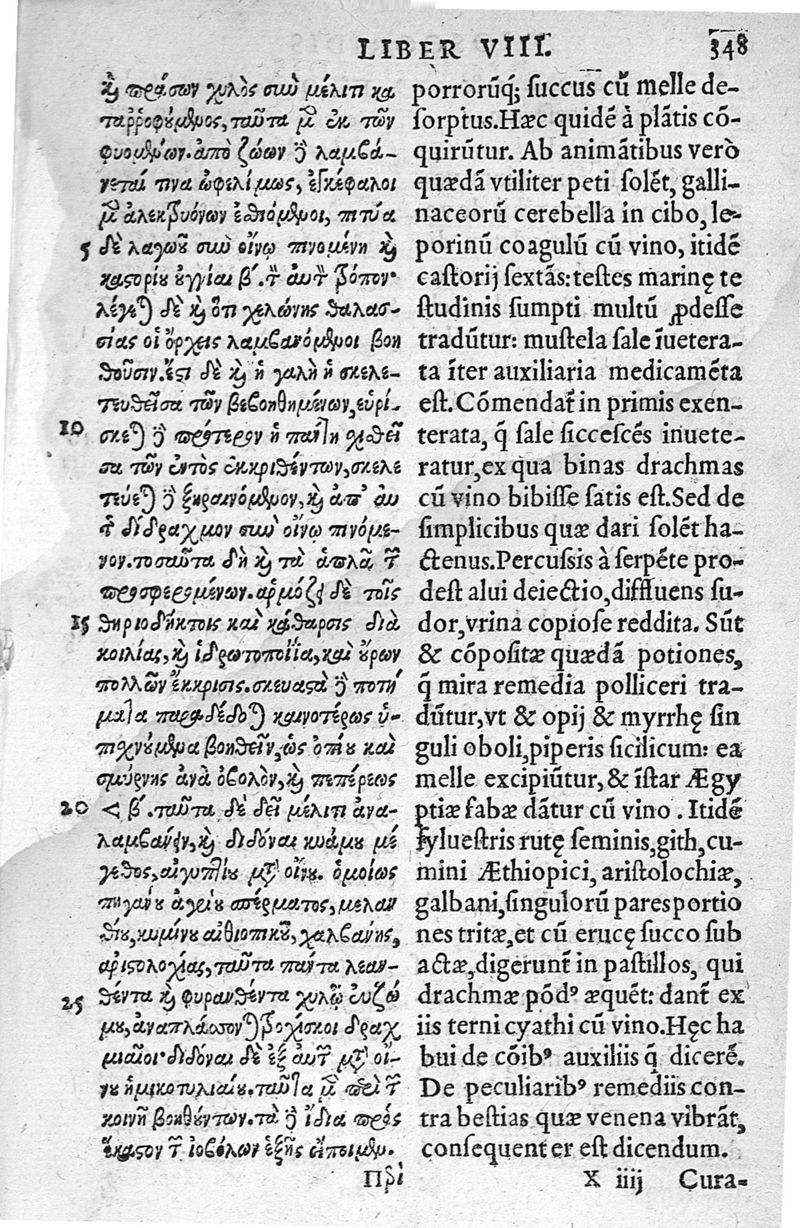 LIBER VIII. 348
κ̀ πράσων χυλὸς σιὼ μέλιτι κα
ταῤῥοφούμενος, ταῦτα μ̃ ἐκ τῶν
φυομένων. ἀπὸ ζώων ἢ λαμβά-
νεταί τινα ὠφελίμως, ἐγκέφαλοι
μ̃ ἀλεκτρυόνων ἐσθιόμενοι, πιτύα
5 δὲ λαγωοῦ σὺν οἴνῳ πινομένη καὶ
καστορίου οὐγγίαι β΄. τ̃ αὐτ̃ τρόπον·
λέγεται δὲ καὶ ὅτι χελώνης θαλασ-
σίας οἱ ὄρχεις λαμβανόμενοι βοη
θοῦσιν. ἔστι δὲ καὶ ἡ γαλῆ ἡ σκελε-
τευθεῖσα τῶν βεβοηθημένων, εὑρί-
10 σκεται πρότερον ἡ
σα τῶν ἐντὸς ἐκκριθέντων, σκελε
τεύεται ξηραινόμενον, καὶ ἀπ' αυ
τ̃ δίδραχμον σὺν οἴνῳ πινόμε-
νον. τοσαῦτα δὴ καὶ τὰ ἁπλᾶ τ̃
προσφερομένων. ἁρμόζει δὲ τοῖς
15 θηριοδήκτοις καὶ κάθαρσις διὰ
κοιλίας, καὶ ἱδρωτοποιΐα, καὶ οὔρων
πολλῶν ἔκκρισις. σκευαστὰ ποτή
ματα παραδέδοται καινοτέρως ὑ-
πιχνούμενα βοηθεῖν, ὡς ὀπίου καὶ
σμύρνης ἀνὰ ὀβολὸν, καὶ πεπέρεως
20 < β΄. ταῦτα δὲ δεῖ μέλιτι ἀνα-
λαμβάνειν, καὶ διδόναι κυάμου μέ
γεθος, αἰγυπτίου μετ' οἴνου. ὁμοίως
πηγάνου ἀγρίου σπέρματος, μελαν
θίου, κυμίνου αἰθιοπικοῦ, χαλβάνης,
ἀριστολοχίας, ταῦτα πάντα λεαν-
25 θέντα καὶ φυρανθέντα χυλῷ εὐζώ
μου, ἀναπλάσσονται τροχίσκοι δραχ
μιαῖοι· διδόναι δὲ ἐξ αὐτ̃ μετ' οἴ-
νου ἡμικοτυλιαίου. ταῦτα μ̃ περὶ τ̃
κοινῇ βοηθέντων. τὰ ἴδια πρὸς
ἕκαστον τ̃ ἰοβόλων ἑξῆς εἴποιμεν.
Περὶ
porrorũq; ſuccus cũ melle de-
ſorptus. Hæc quidẽ à plãtis cõ-
quirũtur. Ab animãtibus verò
quædã vtiliter peti ſolẽt, galli-
naceorũ cerebella in cibo, le-
porinũ coagulũ cũ vino, itidẽ
caſtorij ſextãs: teſtes marinę te
ſtudinis ſumpti multũ ꝓdeſſe
tradũtur: muſtela ſale ĩuetera-
ta ĩter auxiliaria medicamẽta
eſt. Cõmendat̃ in primis exen-
terata, q̃ ſale ſicceſcẽs inuete-
ratur, ex qua binas drachmas
cũ vino bibiſſe ſatis eſt. Sed de
ſimplicibus quæ dari ſolẽt ha-
ctenus. Percuſsis à ſerpẽte pro-
deſt alui deiectio, diffluens ſu-
dor, vrina copioſe reddita. Sũt
& cõpoſitæ quædã potiones,
q̃ mira remedia polliceri tra-
dũtur, vt & opij & myrrhę ſin
guli oboli, piperis ſicilicum: ea
melle excipiũtur, & ĩſtar Ægy
ptiæ fabæ dãtur cũ vino. Itidẽ
ſylueſtris rutę ſeminis, gith, cu-
mini Æthiopici, ariſtolochiæ,
galbani, ſingulorũ pares portio
nes tritæ, et cũ erucę ſucco ſub
actæ, digerunt̃ in paſtillos, qui
drachmæ põdꝰ æquẽt: dant̃ ex
iis terni cyathi cũ vino. Hęc ha
bui de cõibꝰ auxiliis q̃ dicerẽ.
De peculiaribꝰ remediis con-
tra beſtias quæ venena vibrãt,
conſequenter eſt dicendum.
X iiij Cura-